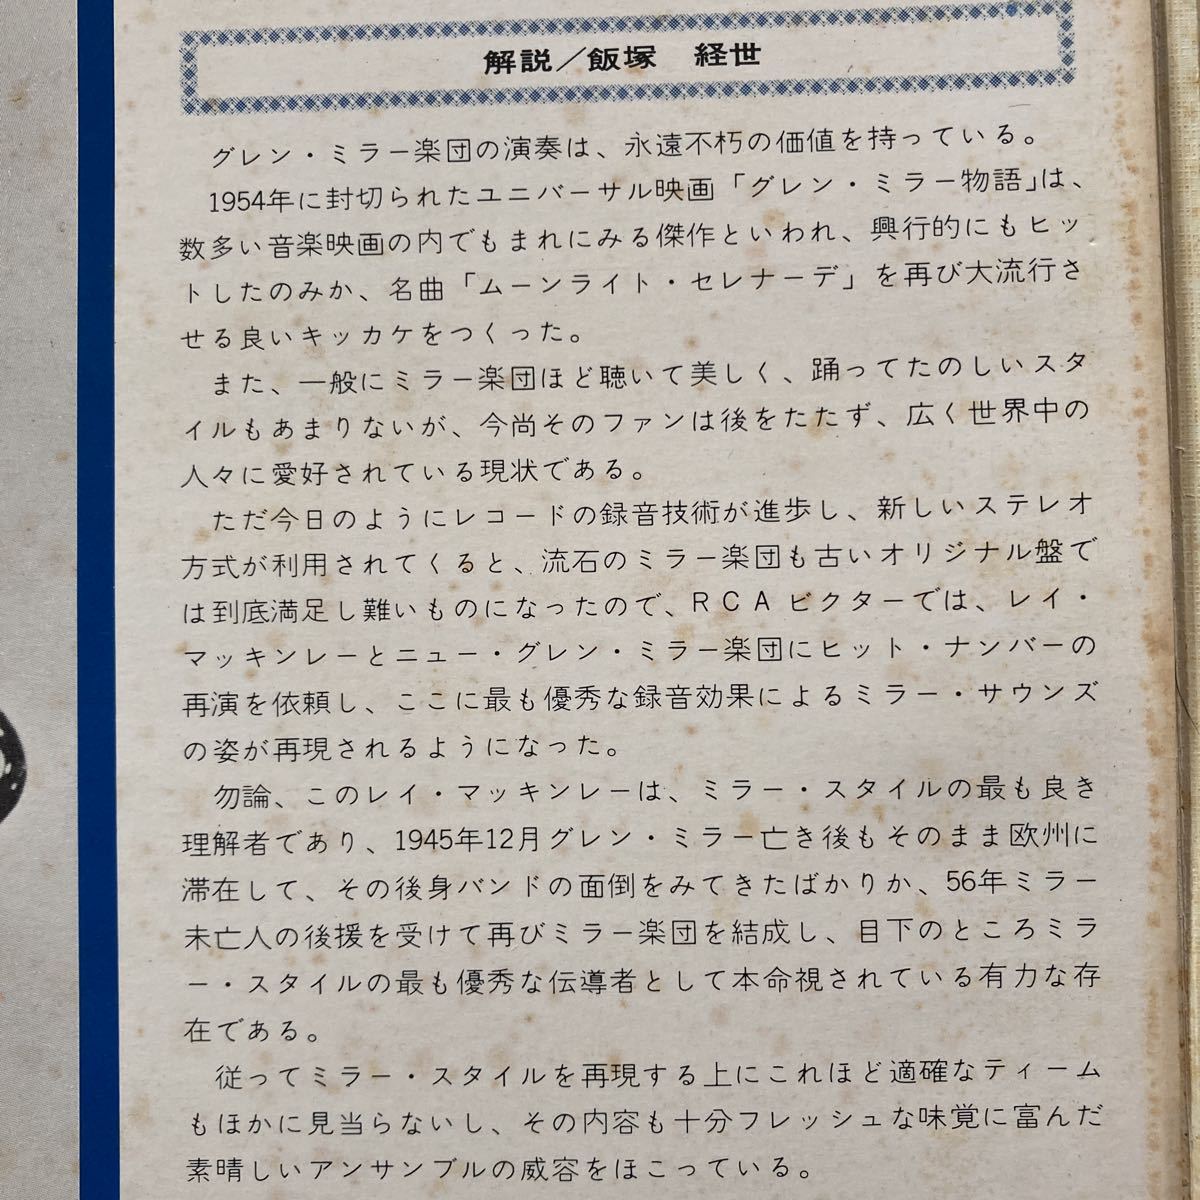 解説／飯塚　経世
グレン・ミラー楽団の演奏は、永遠不朽の価値を持っている。
1954年に封切られたユニバーサル映画「グレン・ミラー物語」は、
数多い音楽映画の内でもまれにみる傑作といわれ、興行的にもヒッ
トしたのみか、名曲「ムーンライト・セレナーデ」を再び大流行さ
せる良いキッカケをつくった。
また、一般にミラー楽団ほど聴いて美しく、踊ってたのしいスタ
イルもあまりないが、今尚そのファンは後をたたず、広く世界中の
人々に愛好されている現状である。
ただ今日のようにレコードの録音技術が進歩し、新しいステレオ
方式が利用されてくると、流石のミラー楽団も古いオリジナル盤で
は到底満足し難いものになったので、ＲＣＡビクターでは、レイ・
マッキンレーとニュー・グレン・ミラー楽団にヒット・ナンバーの
再演を依頼し、ここに最も優秀な録音効果によるミラー・サウンズ
の姿が再現されるようになった。
勿論、このレイ・マッキンレーは、ミラー・スタイルの最も良き
理解者であり、1945年12月グレン・ミラー亡き後もそのまま欧州に
滞在して、その後身バンドの面倒をみてきたばかりか、56年ミラー
未亡人の後援を受けて再びミラー楽団を結成し、目下のところミラ
ー・スタイルの最も優秀な伝導者として本命視されている有力な存
在である。
従ってミラー・スタイルを再現する上にこれほど適確なティーム
もほかに見当らないし、その内容も十分フレッシュな味覚に富んだ
素晴しいアンサンブルの威容をほこっている。